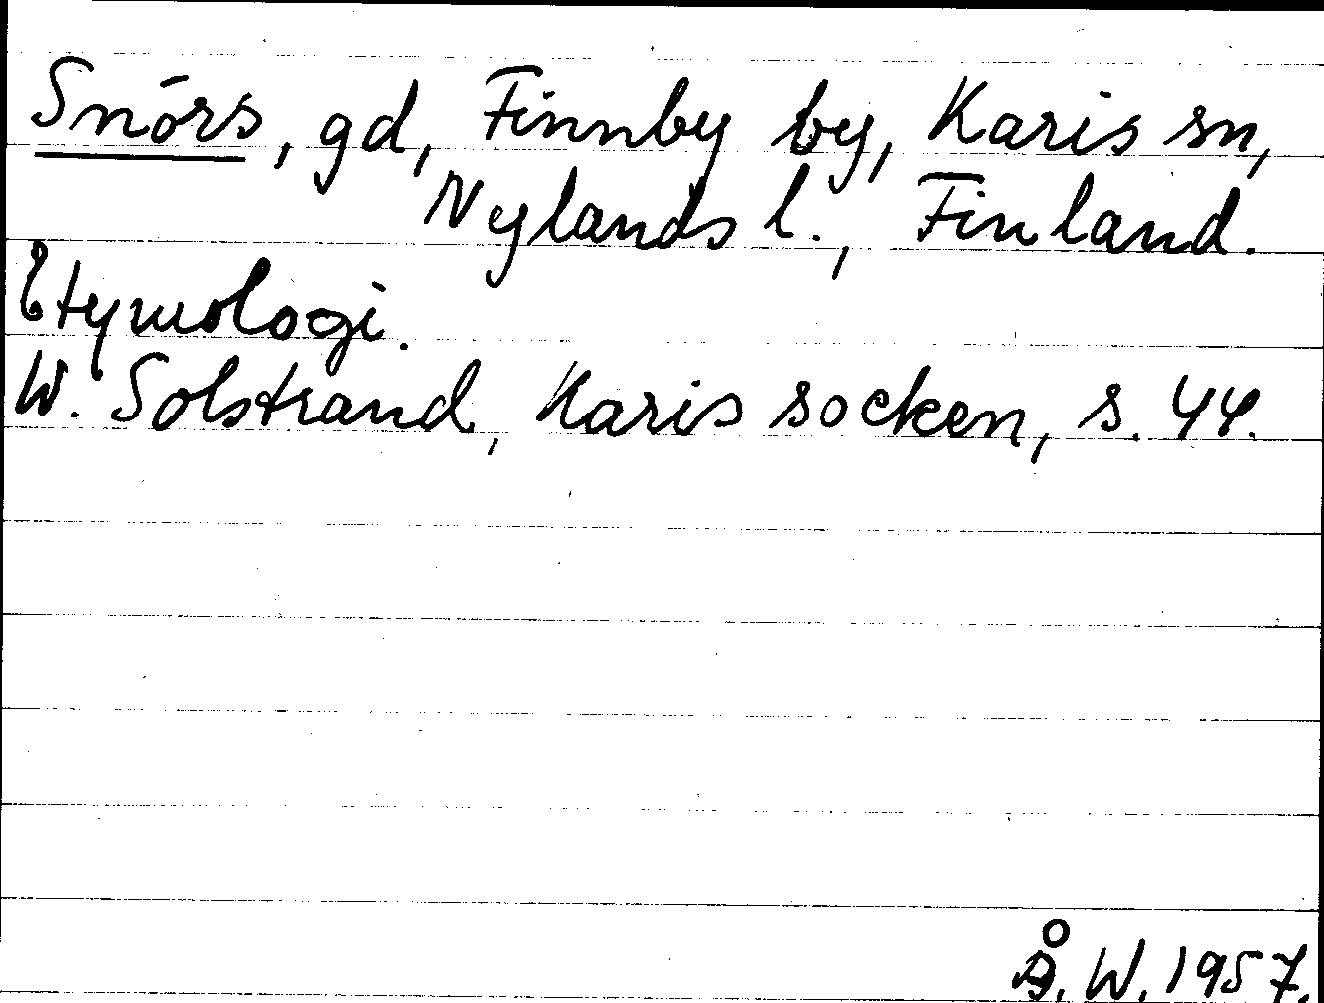 Snörs, gd, Finnby by, Karis sn,
Nylands l., Finland.
Etymologi.
W. Solstrand, Karis socken, s. 44.
Å. W. 1957.